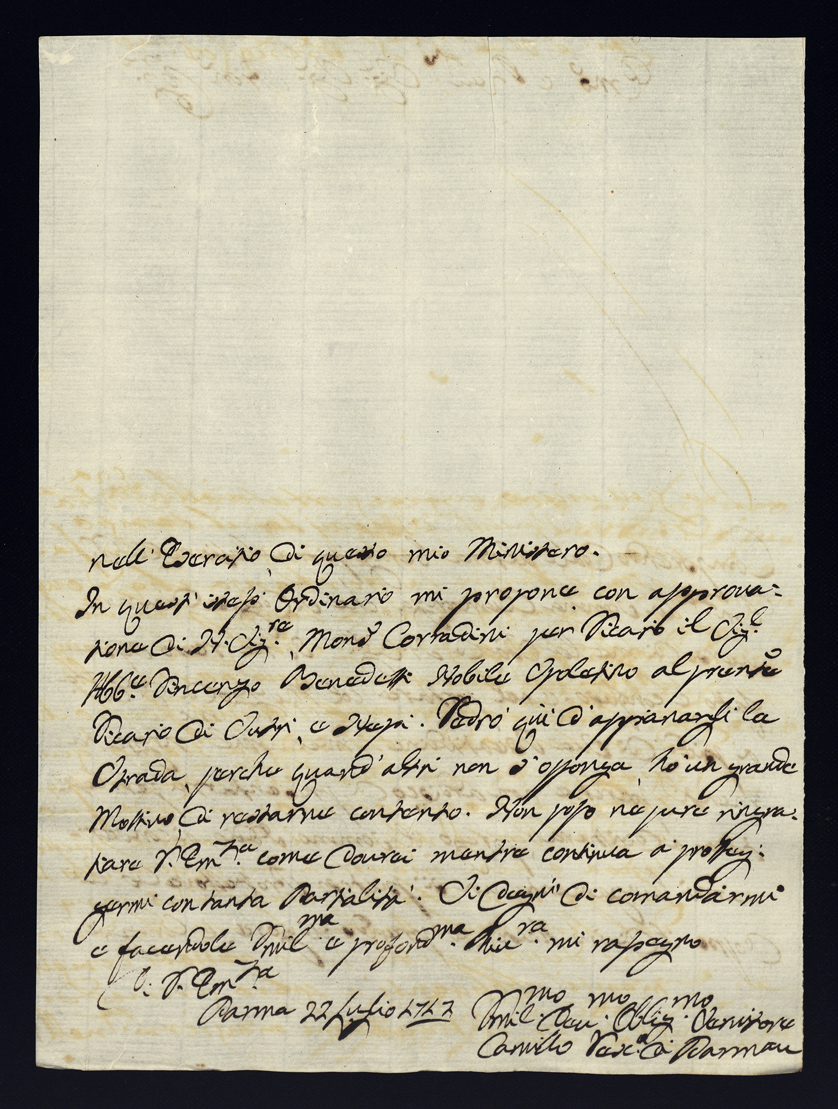 nell' Esercitio di questo mio Ministero.
In quest' istesso Ordinario mi propone con approva=
tione di N. Sig.re Mons.r Corradini per Vicario il Sig.r
Abb.e Vincenzo Benedetti Nobile Spoletino al presente
Vicario di Sutri, e Nepi. Vedrò qui d'appianargli la
Strada, perche quand' altri non s'opponga, hò un grande
Mottivo di restarne contento. Non posso nè pure ringra=
tiare V. Em.za come dovrei mentre continua a proteg=
germi con tanta Partialità. Si degni di comandarmi
e facendole Umil.ma e profond.ma Riv.ra mi rassegno
Di V. Em.za
Parma 22 Luglio 1717
Umil.mo Dev.mo Oblig.mo Servitore
Camillo Vesc.o di Parma